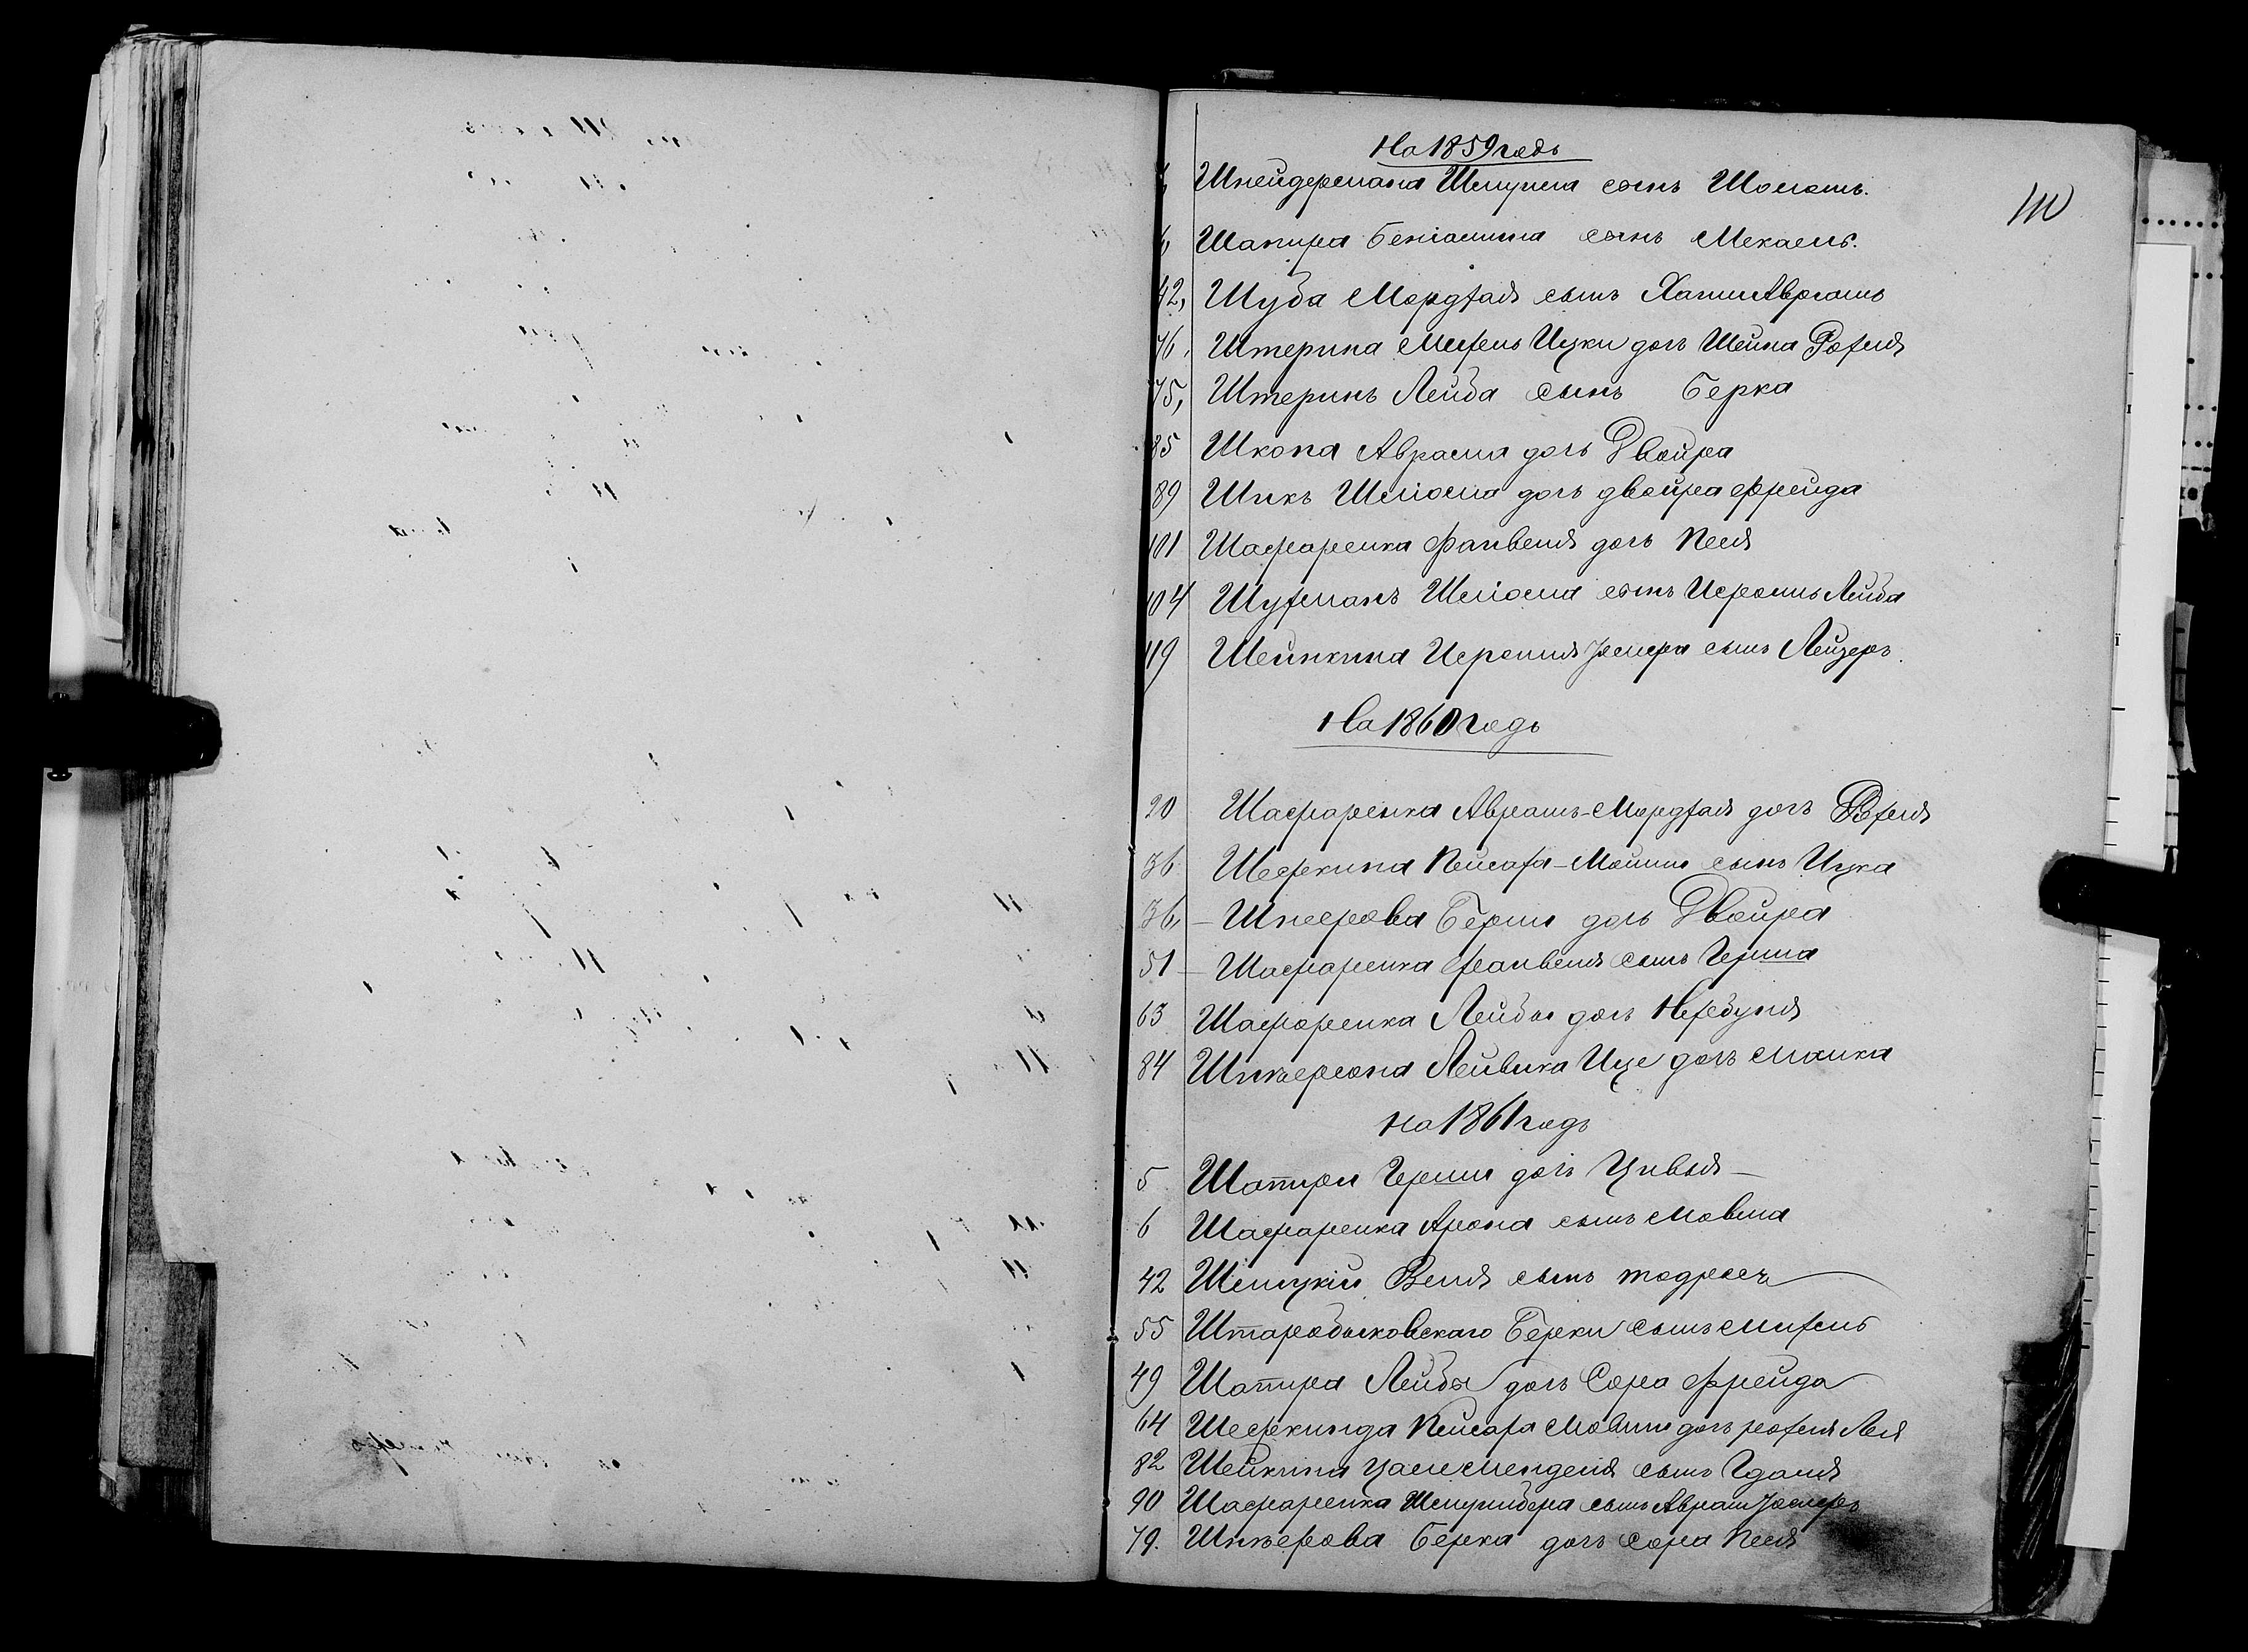 На 1859 годъ
110
Шнейдермана Шмуила сынъ Шоломъ.
Шапира Беніамина сынъ Мекаель.
42, Шуба Мордхая сынъ Хаимъ Авраамъ
76, Штерина Михель Ицки дочь Шейна Рохля
75, Штеринъ Лейба сынъ Берка
85 Шкопа Абрама дочь Двойра
89 Шикъ Шліома дочь двойра Фрейда
101 Шафаренка Файвеля дочь Песя
104 Шухманъ Шліома сынъ Исроэль Лейба
119 Шейнкина Исроэля Іосифа сынъ Лейзеръ.
На 1860 годъ
20 Шафаренка Абрамъ-Мордхая дочь Рохля
36 Шефкина Пейсаха-Мовши сынъ Ицка
36, - Шнеерова Берки дочь Двойра
51 - Шафаренка Файвеля сынъ Гершна
63 Шафоренка Лейбы дочь Нехбуня
84 Шнѣерсона Лейвика Ице дочь Мошка
На 1861 годъ
5 Шапиры Герши дочь Цивья -
6 Шафаренка Арона сынъ Мовша
42 Веля сынъ тодресъ
55 Штаробыховскаго Берки сынъ Михель
49 Шапира Лейбы дочь Сора Фрейда
64 Шефкинда Пейсаха Мовши дочь рохля Лея
82 Шейкина Менделя сынъ Гдаля
90 Шафаренка сынъ Абрамъ Іосифъ
79. Шнѣерова Берка дочь Сора Песя